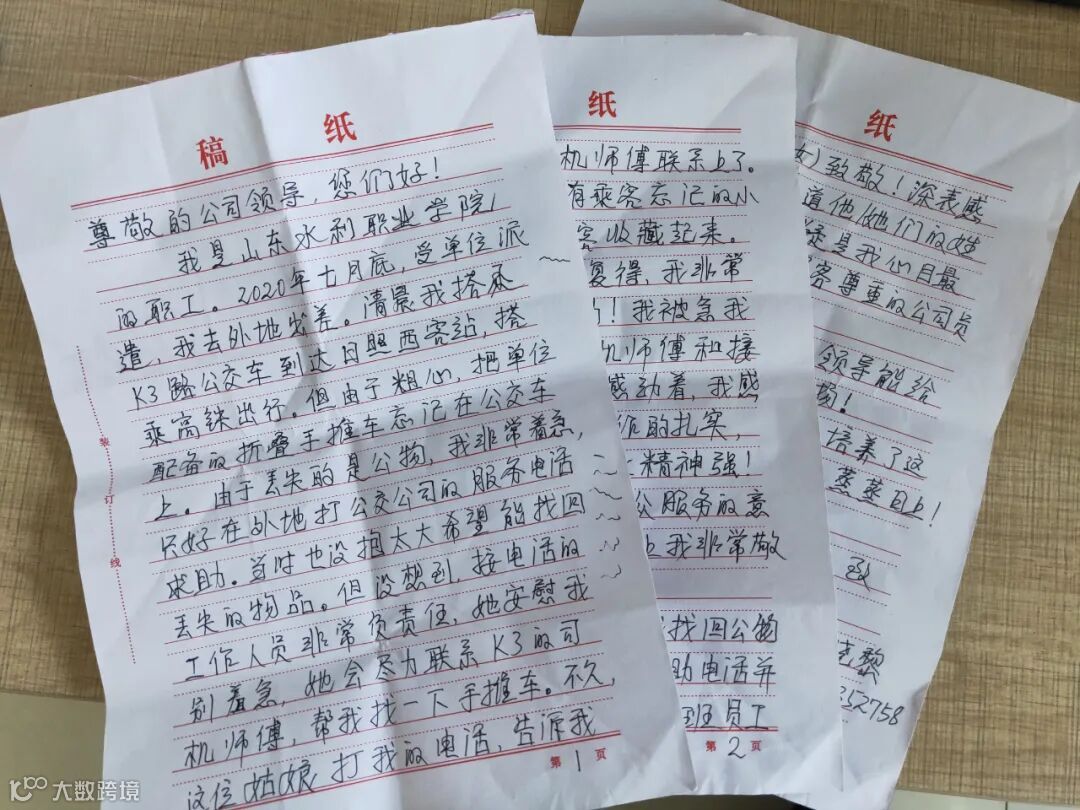 稿 纸
尊敬的公司领导，您们好！
我是山东水利职业学院
的职工。2020年七月底，受单位派
遣，我去外地出差。清晨我搭乘
K3路公交车到达日照西客站，搭
乘高铁出行。但由于粗心，把单位
配备的折叠手推车忘记在公交车
上。由于丢失的是公物，我非常着急，
只好在外地打公交公司的服务电话
求助。当时也没抱太大希望能找回
丢失的物品。但没想到，接电话的
工作人员非常负责任，她安慰我
别着急，她会尽力联系K3的司
机师傅，帮我找一下手推车。不久，
这位姑娘打我的电话，告诉我
第1页
装订线
纸
机师傅联系上了。
有乘客忘记的小
收藏起来。
复得，我非常
！我被急我
机师傅和接
感动着，我感
的扎实，
精神强！
公服务的意
我非常敬
找回公物
助电话并
班员工
第2页
纸
女）致敬！深表感
道他/她们的姓
是我们日照
客尊重的公司员
领导能给
！
培养了这
蒸蒸日上！
致
黎
52758
大数跨境